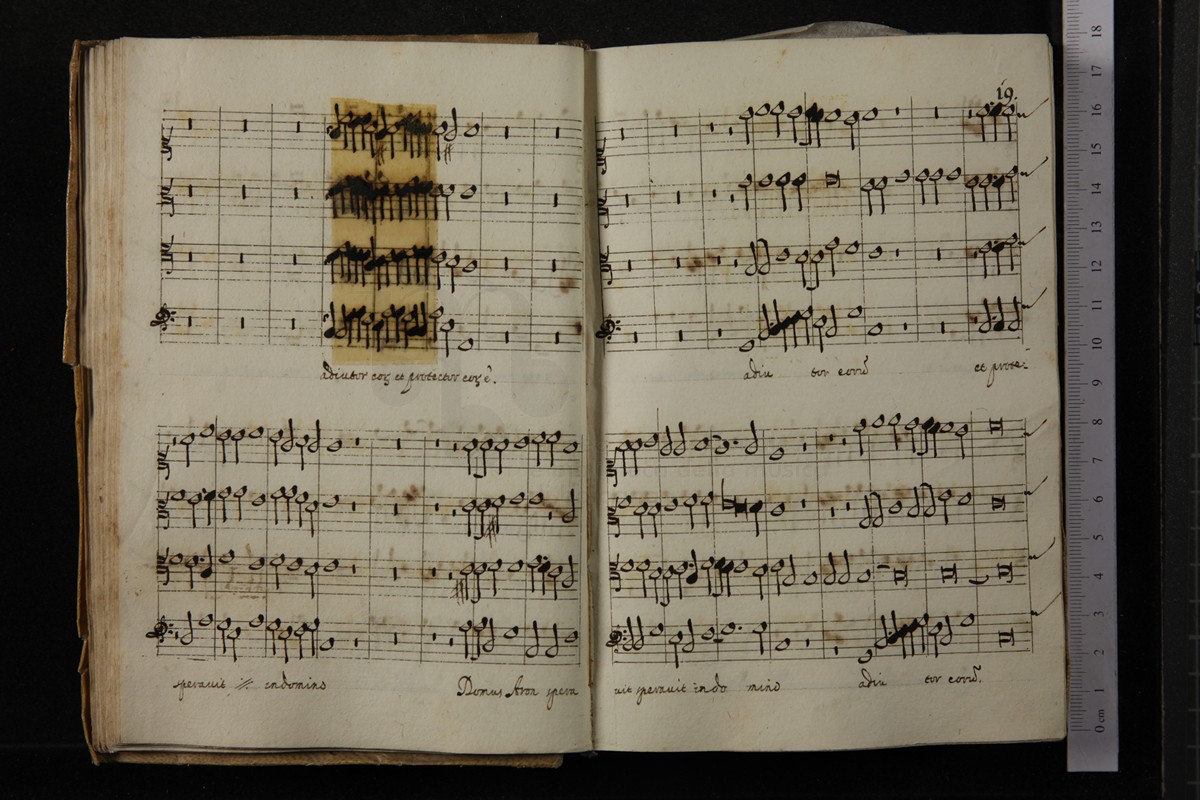 19
adiutor eoꝝ et protector eoꝝ ē.
adiu tor eorū et prote-
speravit ij. in domino
Domus Aron spera
uit speravit in do mino
adiu tor eorū.
0 cm 1 2 3 4 5 6 7 8 9 10 11 12 13 14 15 16 17 18